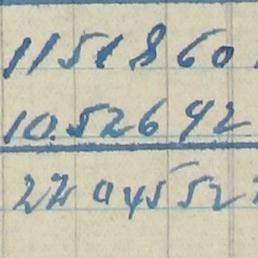 1151860
10.52692
2204552